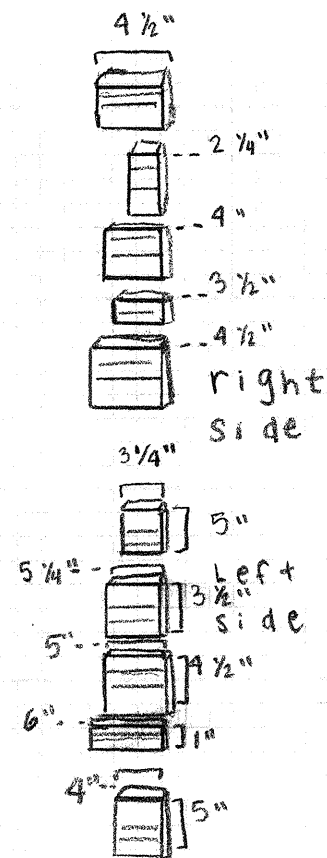 4 1/2"
2 1/4"
4"
3 1/2"
4 1/2"
right
side
3 1/4"
5"
5 1/4"
Left
3 1/2"
side
5"
4 1/2"
6"
1"
4"
5"